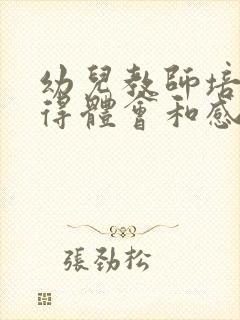 幼兒教師培
得體會和感
張勁松